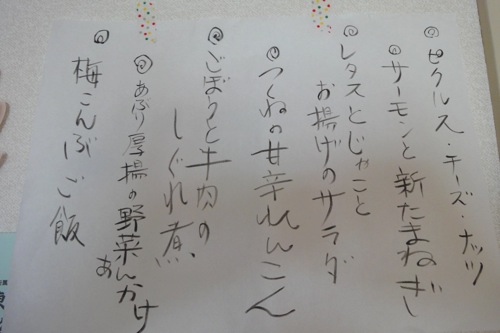 ◎ピクルス・チーズ・ナッツ
◎サーモンと新たまねぎ
◎レタスとじゃこと
お揚げのサラダ
◎つくねの甘辛れんこん
◎ごぼうと牛肉の
しぐれ煮
◎あぶり厚揚の野菜あんかけ
◎梅こんぶご飯